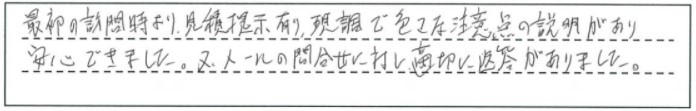 最初の訪問時より、見積提示有り、現調で色々な注意点の説明があり
安心できました。又、メールの問合せに対し適切に返答がありました。